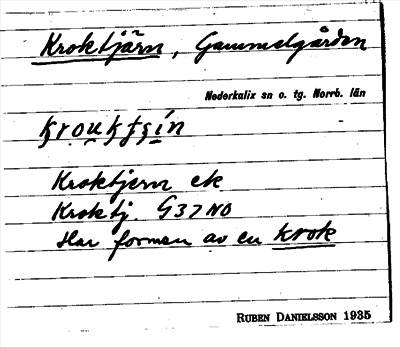 Kroktjärn, Gammelgården
Nederkalix sn o. tg. Norrb. län
Kroktjern ek
Kroktj. G37NO
Har formen av en krok
RUBEN DANIELSSON 1935